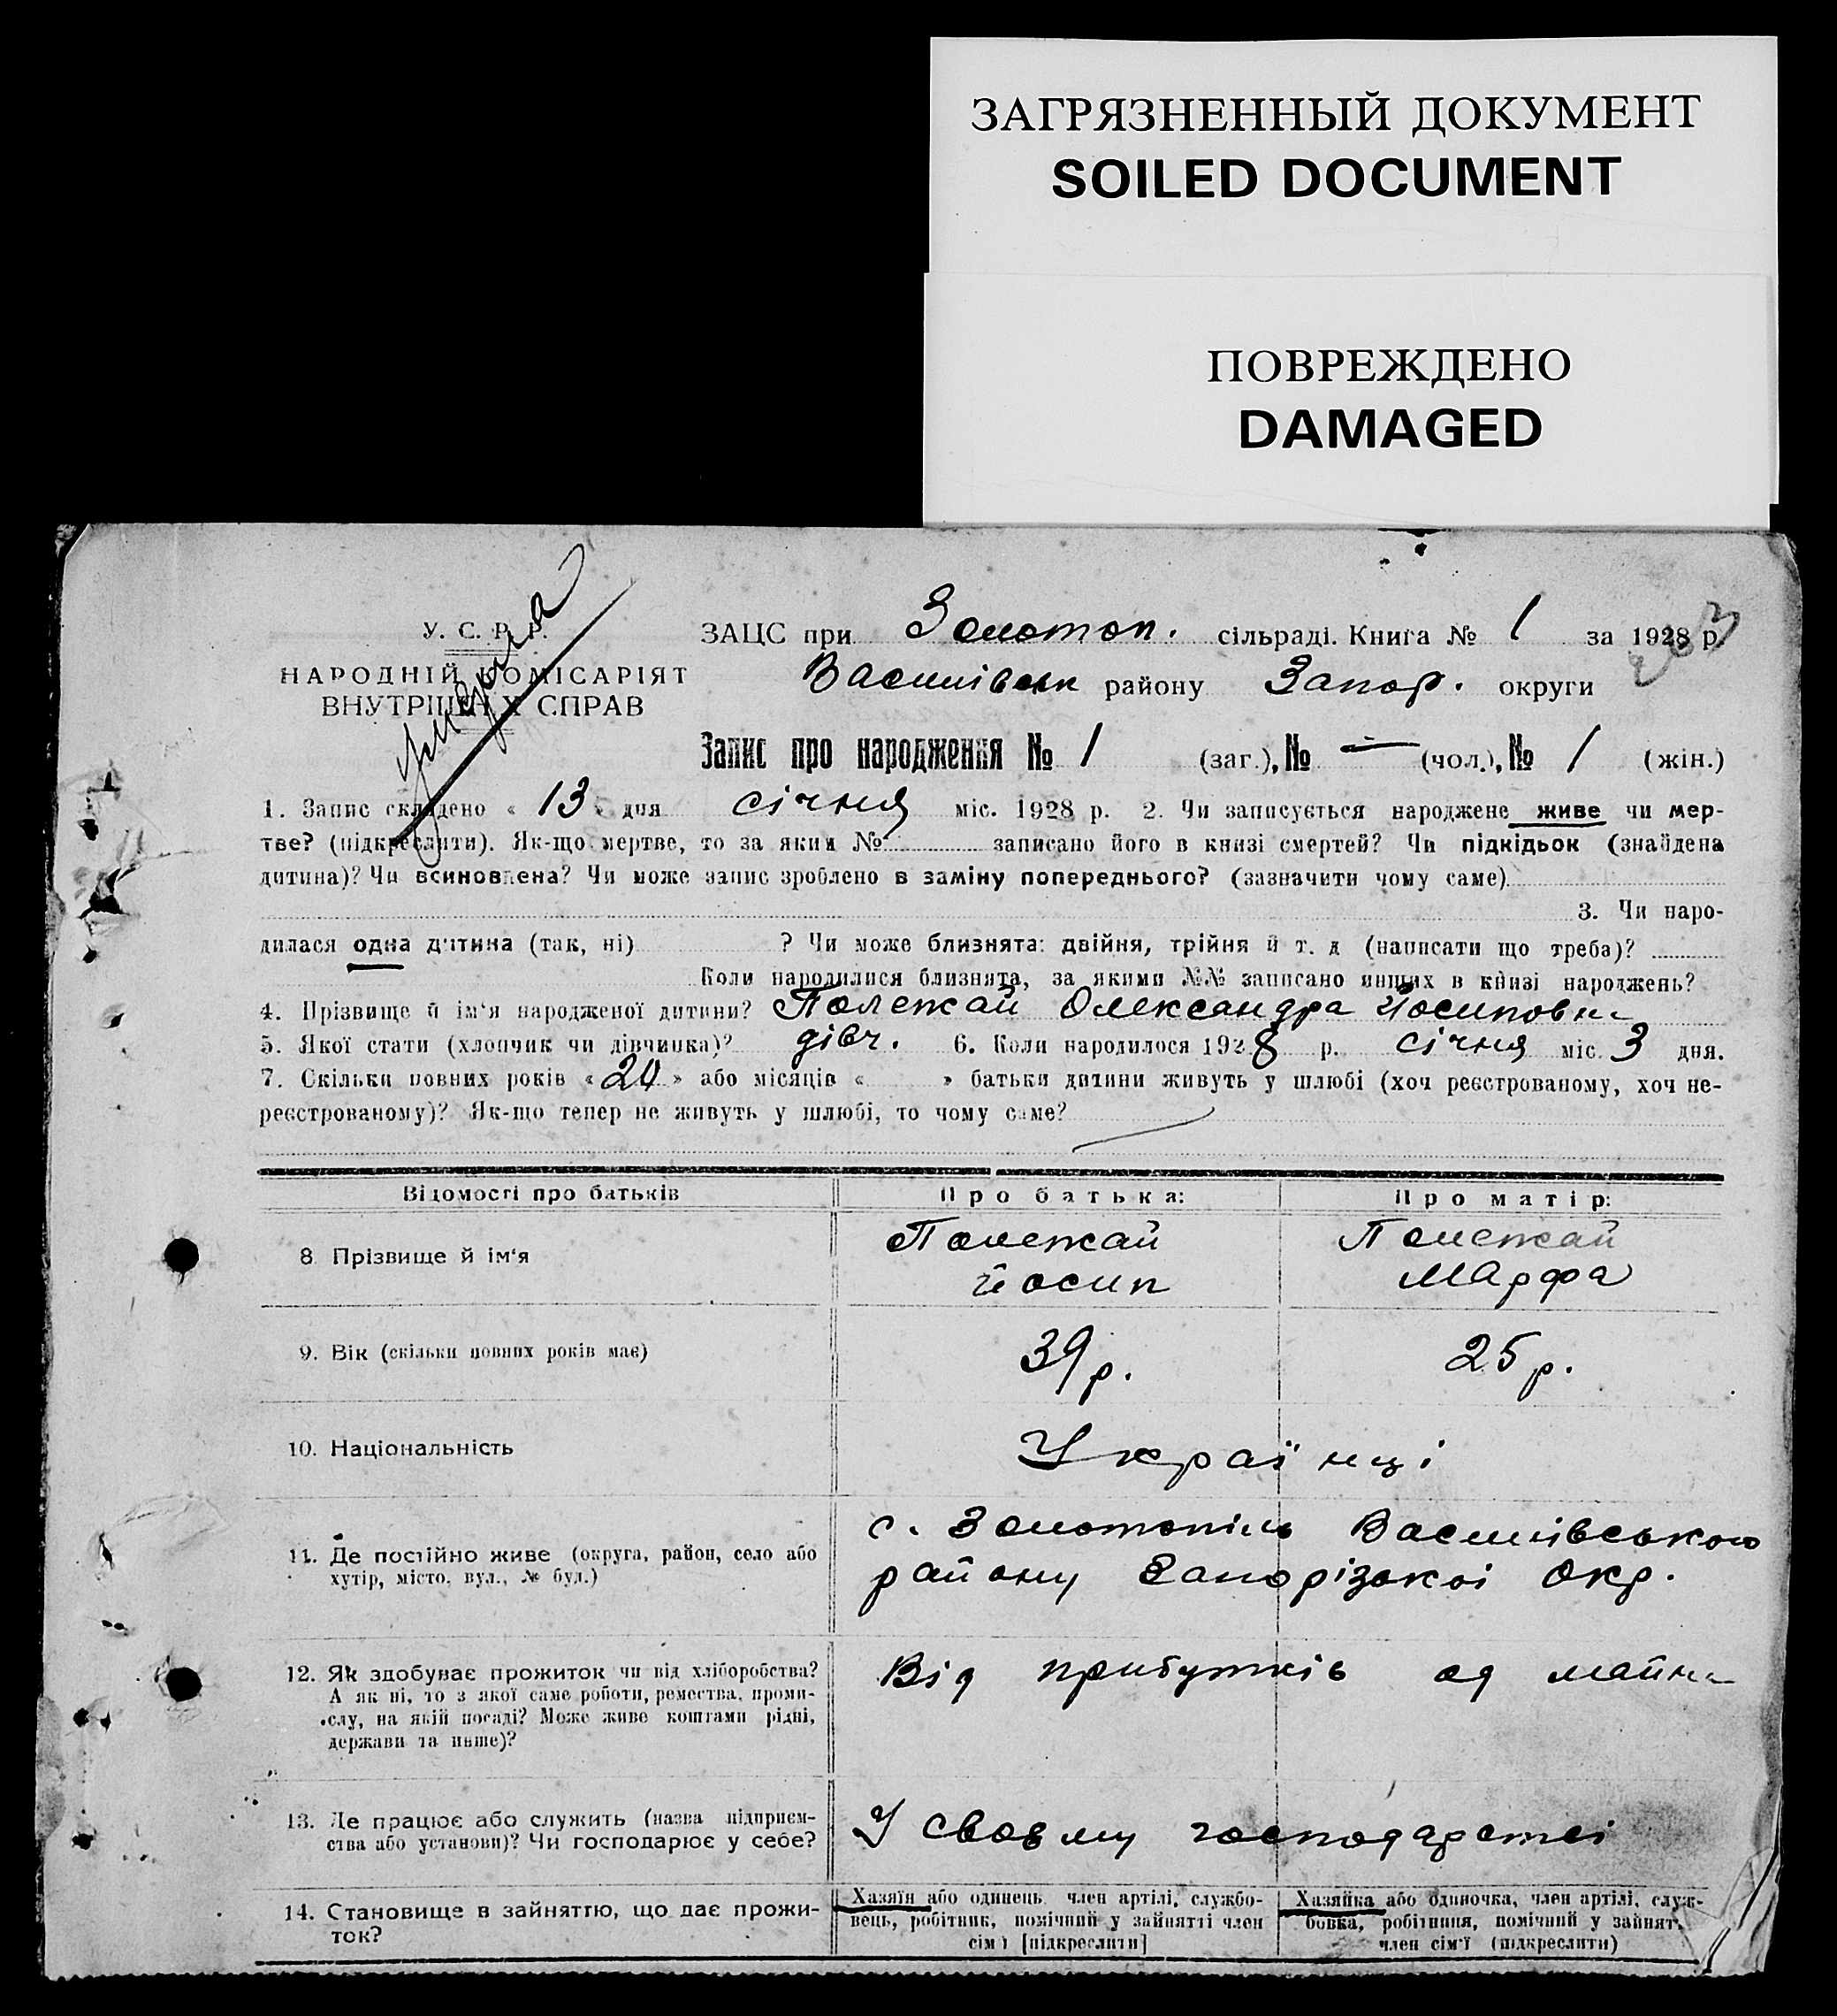 ЗАГРЯЗНЕННЫЙ ДОКУМЕНТ
SOILED DOCUMENT
ПОВРЕЖДЕНО
DAMAGED
У. С. Р. Р.
НАРОДНІЙ КОМІСАРІЯТ
ВНУТРІШНІХ СПРАВ
умерла
ЗАЦС при Золотоп. сільраді. Книга № 1 за 1928 р.
Василівськ району Запор. округи
Запис про народження № 1 (заг.), № — (чол.), № 1 (жін.)
1. Запис складено « 13 » дня січня міс. 1928 р. 2. Чи записується народжене живе чи мер-
тве? (підкреслити). Як-що мертве, то за яким № записано його в книзі смертей? Чи підкідьок (знайдена
дитина)? Чи всиновлена? Чи може запис зроблено в заміну попереднього? (зазначити чому саме)
3. Чи наро-
дилася одна дитина (так, ні) ? Чи може близнята: двійня, трійня й т. д (написати що треба)?
Коли народилися близнята, за якими №№ записано инших в книзі народжень?
4. Прізвище й ім'я народженої дитини? Полежай Олександра Йосиповна
5. Якої стати (хлопчик чи дівчинка)? дівч. 6. Коли народилося 1928 р. січня міс. 3 дня.
7. Скільки повних років « » або місяців « » батьки дитини живуть у шлюбі (хоч реєстрованому, хоч не-
реєстрованому)? Як-що тепер не живуть у шлюбі, то чому саме?
Відомості про батьків Про батька: Про матір:
8 Прізвище й ім'я Полежай Йосип Полежай Марфа
9. Вік (скільки повних років має) 39 р. 25 р.
10. Національність Українці
11. Де постійно живе (округа, район, село або
хутір, місто, вул., № буд.)
с. Золотопіль Василівського
району Запорізької Окр.
12. Як здобуває прожиток чи від хліборобства?
А як ні, то з якої саме роботи, ремества, проми-
слу, на якій посаді? Може живе коштами рідні,
держави та инше)?
Від прибутків од майна
13. Де працює або служить (назва підприєм-
ства або установи)? Чи господарює у себе?
У своєму господарстві
14. Становище в зайняттю, що дає прожи-
ток?
Хазяїн або одинець, член артілі, службо-
вець, робітник, помічний у зайнятті член
сім'ї [підкреслити]
Хазяйка або одиночка, член артілі, служ-
бовка, робітниця, помічний у зайнят.
член сім'ї (підкреслити)